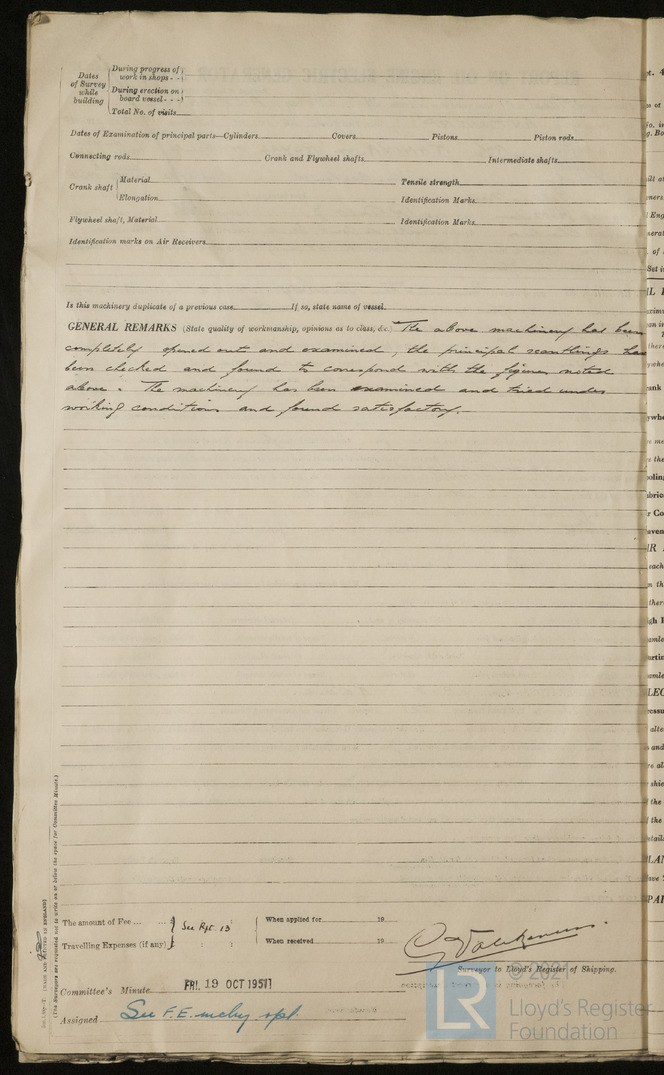 Dates of Survey while building
During progress of work in shops - -
During erection on board vessel - - -
Total No. of visits
Dates of Examination of principal parts—Cylinders Covers Pistons Piston rods
Connecting rods Crank and Flywheel shafts Intermediate shafts
Crank shaft Material Tensile strength
Elongation Identification Marks
Flywheel shaft, Material Identification Marks
Identification marks on Air Receivers
Is this machinery duplicate of a previous case If so, state name of vessel
GENERAL REMARKS (State quality of workmanship, opinions as to class, &c. The above machinery has been
completely opened out and examined, the principal scantlings have
been checked and found to correspond with the figures noted
above. The machinery has been examined and tried under
working conditions and found satisfactory.
The amount of Fee ... ... See Rpt. 13 When applied for 19
Travelling Expenses (if any) When received 19
Surveyor to Lloyd's Register of Shipping.
Committee's Minute FRI. 19 OCT 1951
Assigned See F.E. mchy rpt.
(The Surveyors are requested not to write on or below the space for Committee Minute.)
© 2021
LR
Lloyd's Register
Foundation